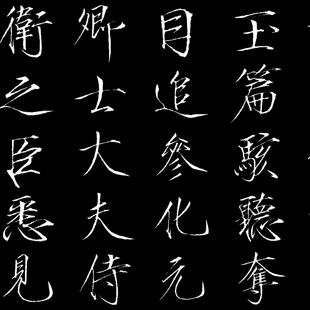 玉篇駭聽奪
目追參化元
卿士大夫侍
衛之臣悉見